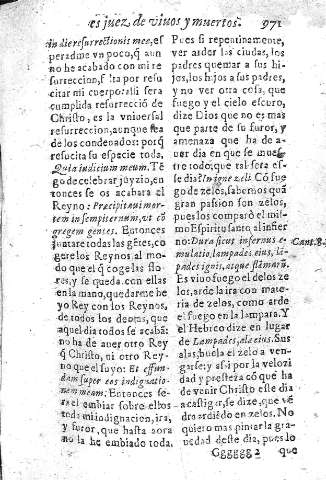 es juez, de viuos y muertos. 971
in die resurrectionis meæ, es
peradme vn poco, q̃ aun
no he acabado con mi re
surreccion, falta por resu
citar mi cuerpo: alli sera
cumplida resurreció de
Christo, es la vniuersal
resurreccion, aunque sea
de los condenados: porq̃
resucita su especie toda.
Quia iudicium meum. Tẽ
go de celebrar juyzio, en
tonces se os acabara el
Reyno: Præcipitaui mor-
tem in sempiternum, vt cõ
gregem gentes. Entonces
juntare todas las gẽtes, co
gere los Reynos, al mo-
do que el q̃ coge las flo
res, y se queda con ellas
en la mano, quedareme he
yo Rey con los Reynos,
de todos los demas, que
aquel dia todo se acaba:
no ha de auer otro Rey
q̃ Christo, ni otro Rey-
no que el suyo: Et effun-
dam super eos indignatio-
nem meam. Entonces se-
ra el embiar sobre ellos
toda mi indignacion, ira,
y furor, que hasta aora
no la he embiado toda.
Pues si repentinamente,
ver arder las ciudades, los
padres quemar a sus hi-
jos, los hijos a sus padres,
y no ver otra cosa, que
fuego y el cielo escuro,
dize Dios que no es mas
que parte de su furor, y
amenaza que ha de a-
uer dia en que se mues-
tre todo: que tal sera es-
se dia? In igne zeli. Cõ fue-
go de zelos, sabemos quã
gran passion son zelos,
pues los comparò el mis-
mo Espiritu santo al infier
no: Dura sicut infernus e-
mulatio, lampades eius, lã-
pades ignis, atque flãmarũ.
Cant. 8.
Es viuo fuego el de los ze
los, arde la ira con mate-
ria de zelos, como arde
el fuego en la lampara. Y
el Hebreo dize en lugar
de Lampades, alæ eius. Sus
alas, buela el zelo a ven-
garse; y assi por la velozi
dad y presteza cõ que ha
de venir Christo este dia
a castigar, se dize, que vẽ
dra ardiẽdo en zelos. No
quiero mas pintar la gra-
uedad deste dia, pues lo
Gggggg 2 que